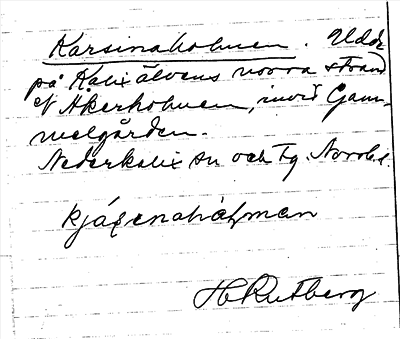 Karsinaholmen. Udde
på Kalixälvens norra strand
Åkerholmen, invid Gam-
melgården.
Nederkalix sn och tg. Norrb. l.
kjásenahåḷman
H Rutberg